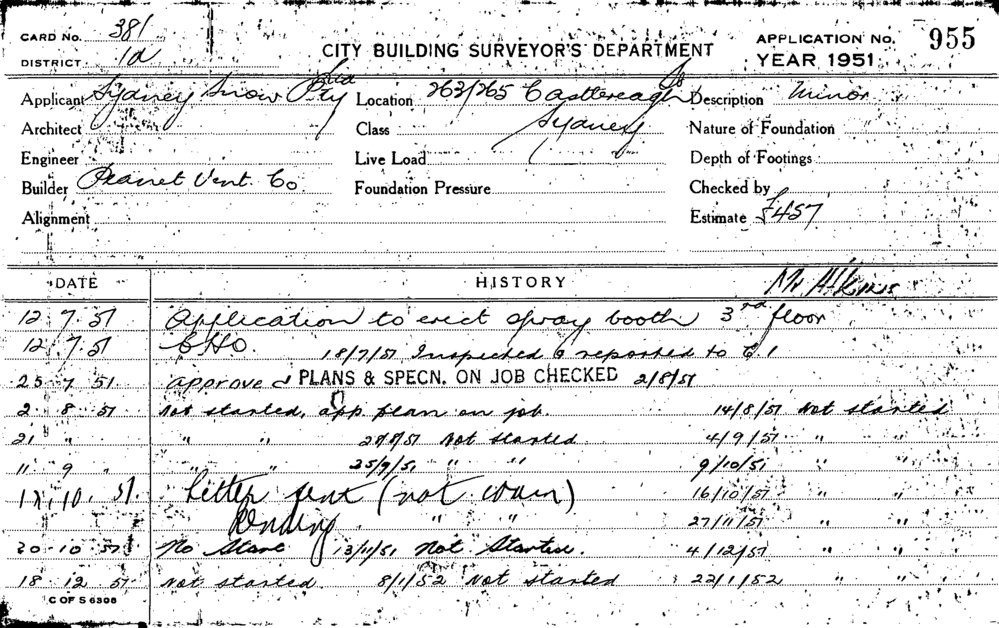 CARD No. 381
DISTRICT 1a
CITY BUILDING SURVEYOR'S DEPARTMENT
APPLICATION No. 955
YEAR 1951
Applicant Sydney Snow Pty Ltd
Location 263/265 Castlereagh St Sydney
Description Minor
Architect
Class
Nature of Foundation
Engineer
Live Load
Depth of Footings
Builder Planet Vent. Co
Foundation Pressure
Checked by
Alignment
Estimate £457
DATE HISTORY Mr Atkins
12 7 51 Application to erect spray booth 3rd floor
12 7 51 CHO. 18/7/51 Inspected & reported to C.I
25 7 51 approved PLANS & SPECN. ON JOB CHECKED 2/8/51
2 8 51 Not started, app plan on job. 14/8/51 Not started
21 " " " 27/8/51 Not started 4/9/51 " "
11 9 " " " 25/9/51 " " 9/10/51 " "
17.10.51. Letter sent (not comm) 16/10/51 " "
Pending " " 27/11/51 " "
20 10 51 No Start 13/11/51 Not Started. 4/12/51 " "
18 12 51 Not started. 8/1/52 Not started 22/1/52 " "
C OF S 6308